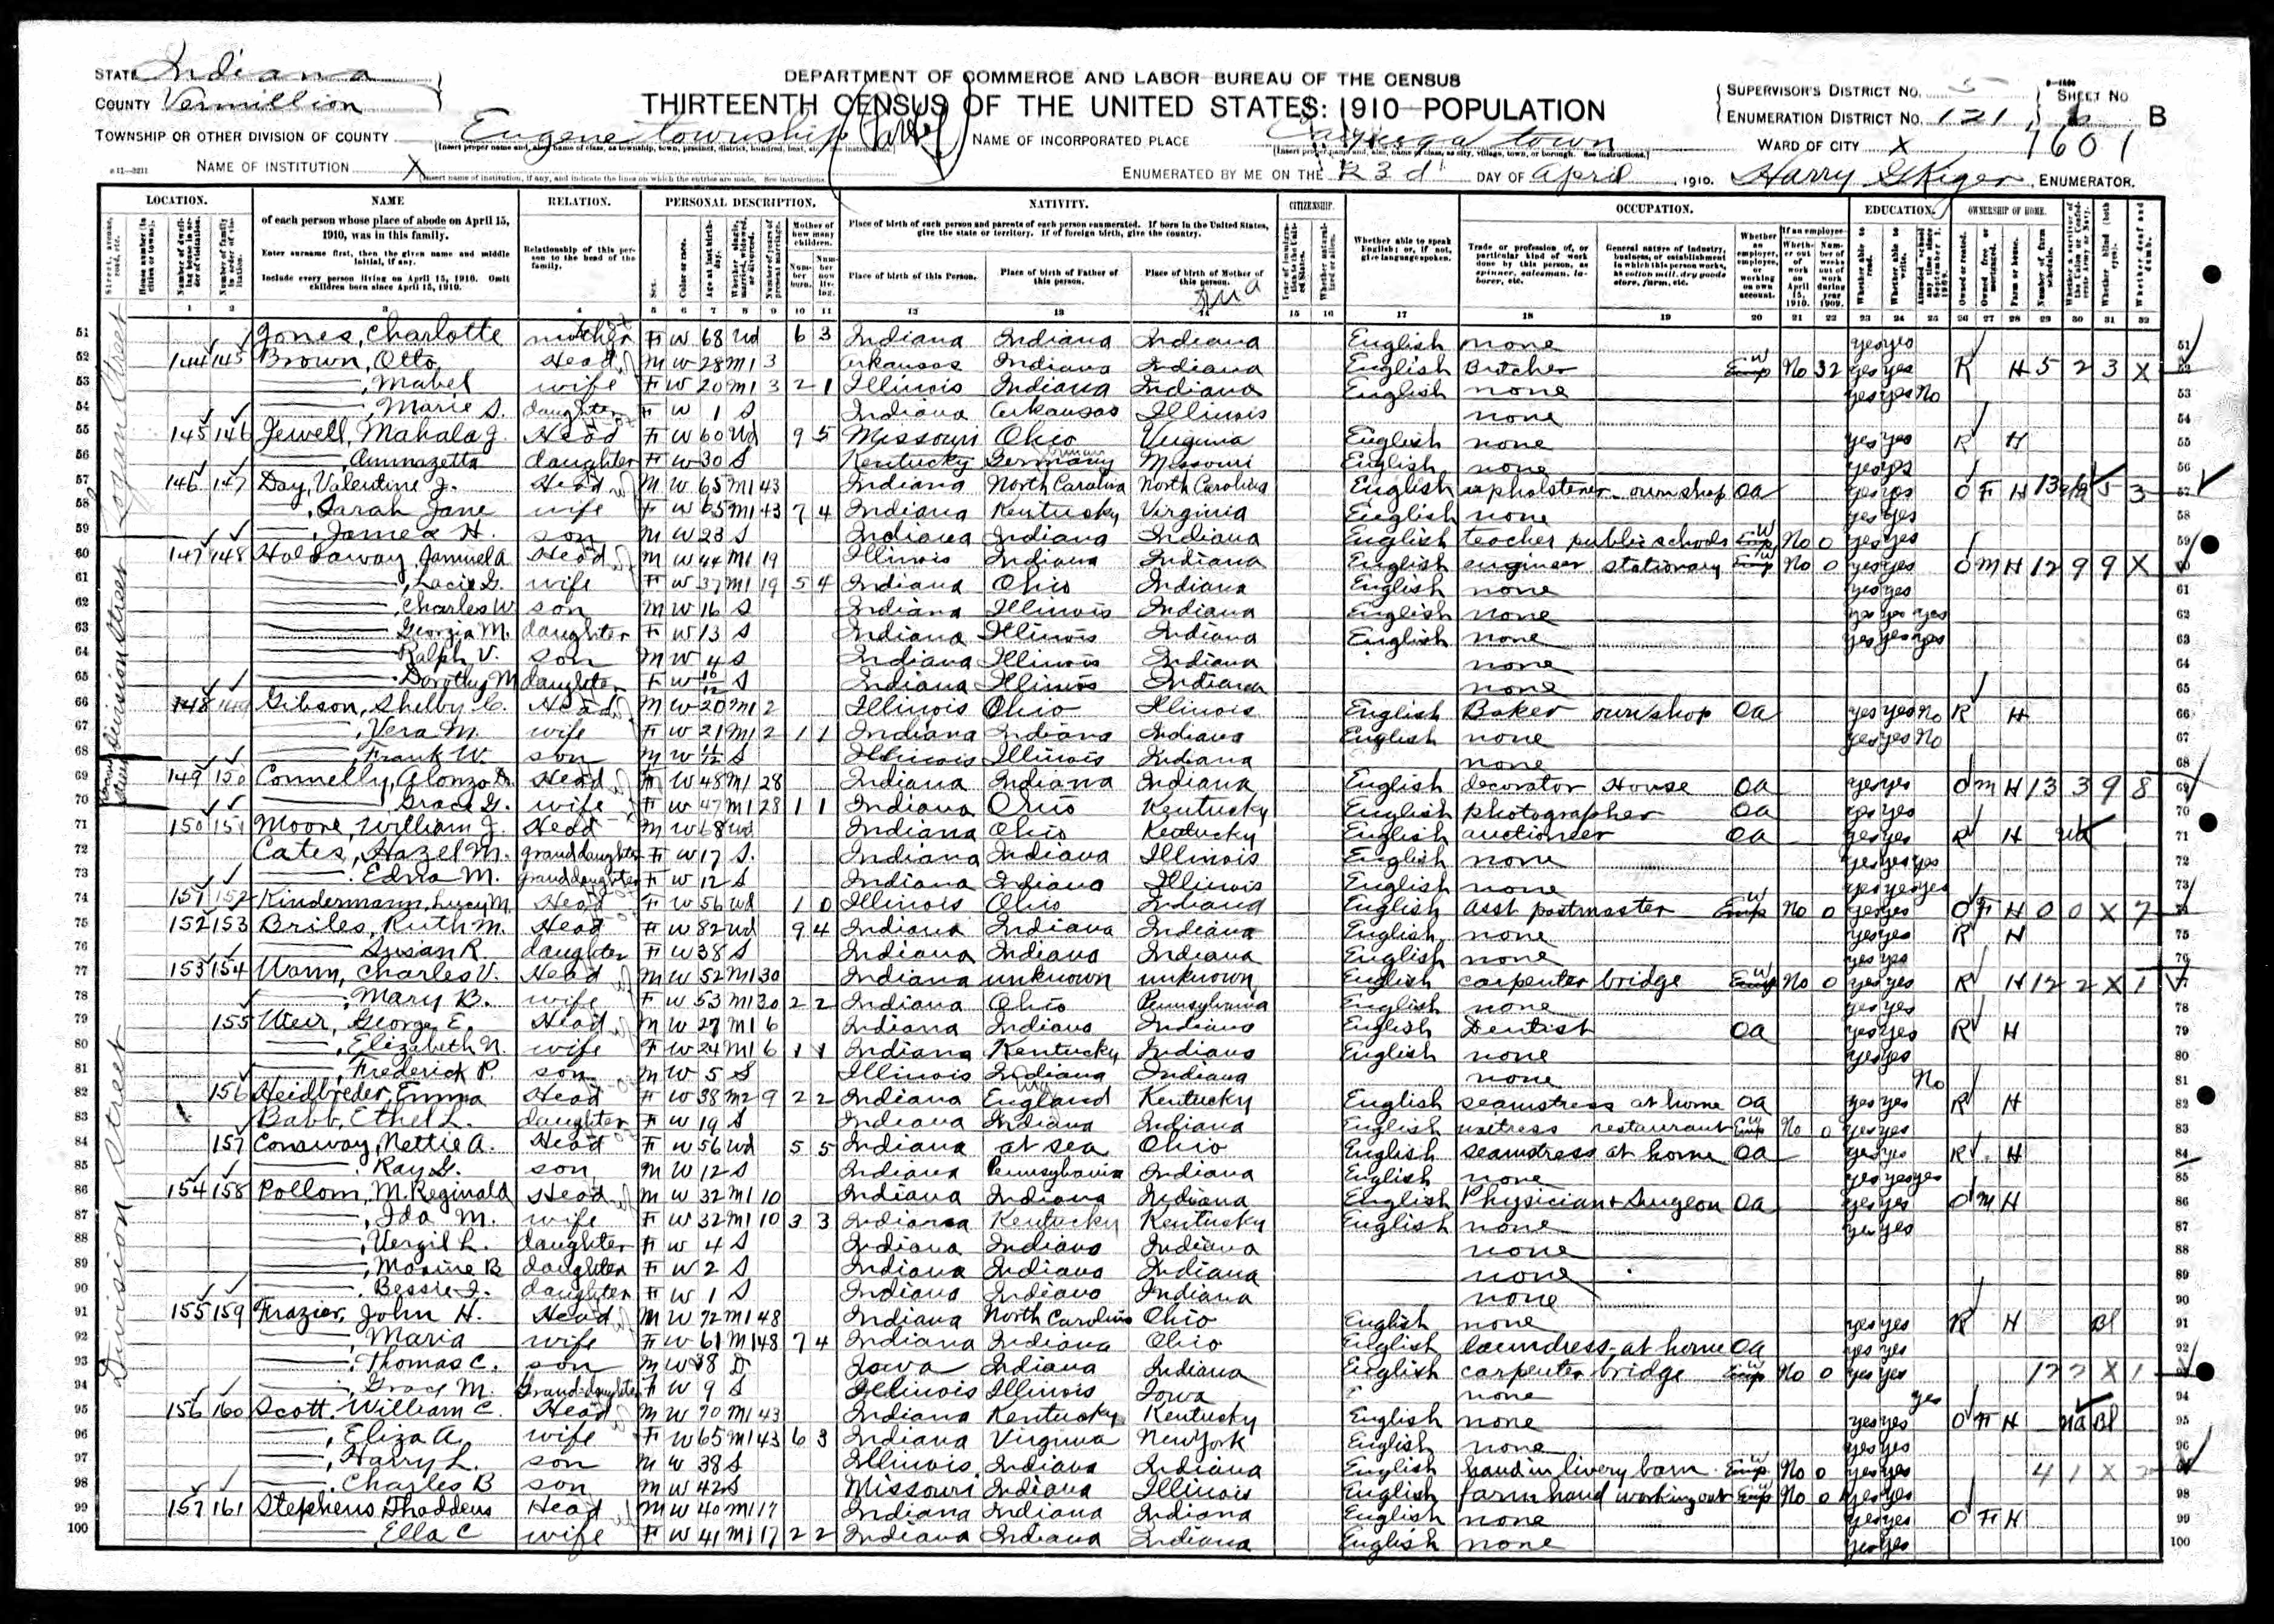 STATE Indiana
COUNTY Vermillion
DEPARTMENT OF COMMERCE AND LABOR-BUREAU OF THE CENSUS
THIRTEENTH CENSUS OF THE UNITED STATES: 1910-POPULATION
SUPERVISOR'S DISTRICT NO. 5
ENUMERATION DISTRICT NO. 121
SHEET NO. B
1601
TOWNSHIP OR OTHER DIVISION OF COUNTY Eugene township
NAME OF INCORPORATED PLACE Cayuga town
WARD OF CITY X
NAME OF INSTITUTION X
ENUMERATED BY ME ON THE 23d DAY OF April, 1910. Harry Kiger, ENUMERATOR.
LOCATION. NAME RELATION. PERSONAL DESCRIPTION. NATIVITY. CITIZENSHIP. OCCUPATION. EDUCATION. OWNERSHIP OF HOME.
of each person whose place of abode on April 15, 1910, was in this family.
Enter surname first, then the given name and middle initial, if any.
Include every person living on April 15, 1910. Omit children born since April 15, 1910.
Relationship of this person to the head of the family.
Mother of how many children.
Place of birth of each person and parents of each person enumerated. If born in the United States, give the state or territory. If of foreign birth, give the country.
Place of birth of this Person. Place of birth of Father of this person. Place of birth of Mother of this person.
Whether able to speak English; or, if not, give language spoken.
Trade or profession of, or particular kind of work done by this person, as spinner, salesman, laborer, etc.
General nature of industry, business, or establishment in which this person works, as cotton mill, dry goods store, farm, etc.
Logan Street
Division Street
51 Jones, Charlotte mother F W 68 Wd 6 3 Indiana Indiana Indiana English none yes yes
52 144 145 Brown, Otto Head M W 28 M1 3 Arkansas Indiana Indiana English Butcher W No 32 yes yes R H 5 2 3 X
53 , Mabel wife F W 20 M1 3 2 1 Illinois Indiana Indiana English none yes yes No
54 , Marie S. daughter F W 1 S Indiana Arkansas Illinois none
55 145 146 Jewell, Mahala J. Head F W 60 Wd 9 5 Missouri Ohio Virginia English none yes yes R H
56 , Annazetta daughter F W 30 S Kentucky Germany Missouri English none yes yes
57 146 147 Day, Valentine J. Head M W 65 M1 43 Indiana North Carolina North Carolina English upholsterer own shop OA yes yes O F H
58 , Sarah Jane wife F W 65 M1 43 7 4 Indiana Kentucky Virginia English none yes yes
59 , James H. son M W 23 S Indiana Indiana Indiana English teacher public schools W No 0 yes yes
60 147 148 Holdaway, Samuel A Head M W 44 M1 19 Illinois Indiana Indiana English engineer stationary W No 0 yes yes O M H 12 9 9 X
61 , Lacie G. wife F W 37 M1 19 5 4 Indiana Ohio Indiana English none yes yes
62 , Charles W son M W 16 S Indiana Illinois Indiana English none yes yes yes
63 Georgia M. daughter F W 13 S Indiana Illinois Indiana English none yes yes yes
64 Ralph V. son M W 4 S Indiana Illinois Indiana none
65 Dorothy M daughter F W 10/12 S Indiana Illinois Indiana none
66 148 149 Gibson, Shelby C. Head M W 20 M1 2 Illinois Ohio Illinois English Baker own shop OA yes yes No R H
67 , Vera M. wife F W 21 M1 2 1 1 Indiana Indiana Indiana English none yes yes No
68 , Frank W. son M W 11/12 S Illinois Illinois Indiana none
69 149 150 Connelly, Alonzo Head M W 48 M1 28 Indiana Indiana Indiana English decorator House OA yes yes O M H 13 3 9 8
70 , Grace G. wife F W 47 M1 28 1 1 Indiana Ohio Kentucky English photographer OA yes yes
71 150 151 Moore, William J. Head M W 68 Wd Indiana Ohio Kentucky English auctioneer OA yes yes R H UA
72 Cates, Hazel M. granddaughter F W 17 S. Indiana Indiana Illinois English none yes yes yes
73 , Edna M. granddaughter F W 12 S Indiana Indiana Illinois English none yes yes yes
74 151 152 Kindermann, Lucy M. Head F W 56 Wd 1 0 Illinois Ohio Indiana English Asst postmaster W No 0 yes yes O F H 0 0 X 7
75 152 153 Briles, Ruth M. Head F W 82 Wd 9 4 Indiana Indiana Indiana English none yes yes R H
76 Susan R. daughter F W 38 S Indiana Indiana Indiana English none yes yes
77 153 154 Wann, Charles V. Head M W 52 M1 30 Indiana unknown unknown English carpenter bridge W No 0 yes yes R H 12 2 X 1
78 , Mary B. wife F W 53 M1 30 2 2 Indiana Ohio Pennsylvania English none yes yes
79 155 Weir, George E. Head M W 27 M1 6 Indiana Indiana Indiana English Dentist OA yes yes R H
80 , Elizabeth N. wife F W 24 M1 6 1 1 Indiana Kentucky Indiana English none yes yes
81 , Frederick P. son M W 5 S Illinois Indiana Indiana none No
82 156 Heidbreder, Emma Head F W 38 M2 9 2 2 Indiana England Kentucky English seamstress at home OA yes yes R H
83 Babb, Ethel L. daughter F W 19 S Indiana Indiana Indiana English waitress restaurant W No 0 yes yes
84 157 Conaway, Nettie A. Head F W 56 Wd 5 5 Indiana at sea Ohio English seamstress at home OA yes yes R H
85 , Ray son M W 12 S Indiana Pennsylvania Indiana English none yes yes yes
86 154 158 Pollom, M. Reginald Head M W 32 M1 10 Indiana Indiana Indiana English Physician + Surgeon OA yes yes O M H
87 , Ida M. wife F W 32 M1 10 3 3 Indiana Kentucky Kentucky English none yes yes
88 , Vergil L. daughter F W 4 S Indiana Indiana Indiana none
89 , Maxine B daughter F W 2 S Indiana Indiana Indiana none
90 , Bessie I. daughter F W 1 S Indiana Indiana Indiana none
91 155 159 Frazier, John H. Head M W 72 M1 48 Indiana North Carolina Ohio English none yes yes R H Bl
92 , Maria wife F W 61 M1 48 7 4 Indiana Indiana Ohio English laundress at home OA yes yes
93 , Thomas C. son M W 38 D Iowa Indiana Indiana English carpenter bridge W No 0 yes yes 12 2 X 1
94 , Grace M. Grand-daughter F W 9 S Illinois Illinois Iowa none yes
95 156 160 Scott, William C. Head M W 70 M1 43 Indiana Kentucky Kentucky English none yes yes O F H UA Bl
96 , Eliza A. wife F W 65 M1 43 6 3 Indiana Virginia New York English none yes yes
97 , Harry L. son M W 38 S Illinois Indiana Indiana English hand in livery barn W No 0 yes yes 4 1 X
98 , Charles B son M W 42 S Missouri Indiana Illinois English farm hand working out No 0 yes yes
99 157 161 Stephens Thaddeus Head M W 40 M1 17 Indiana Indiana Indiana English none yes yes O F H
100 Ella C wife F W 41 M1 17 2 2 Indiana Indiana Indiana English none yes yes